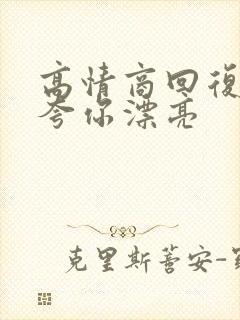 高情商回復
夸你漂亮
克里斯蒂安-